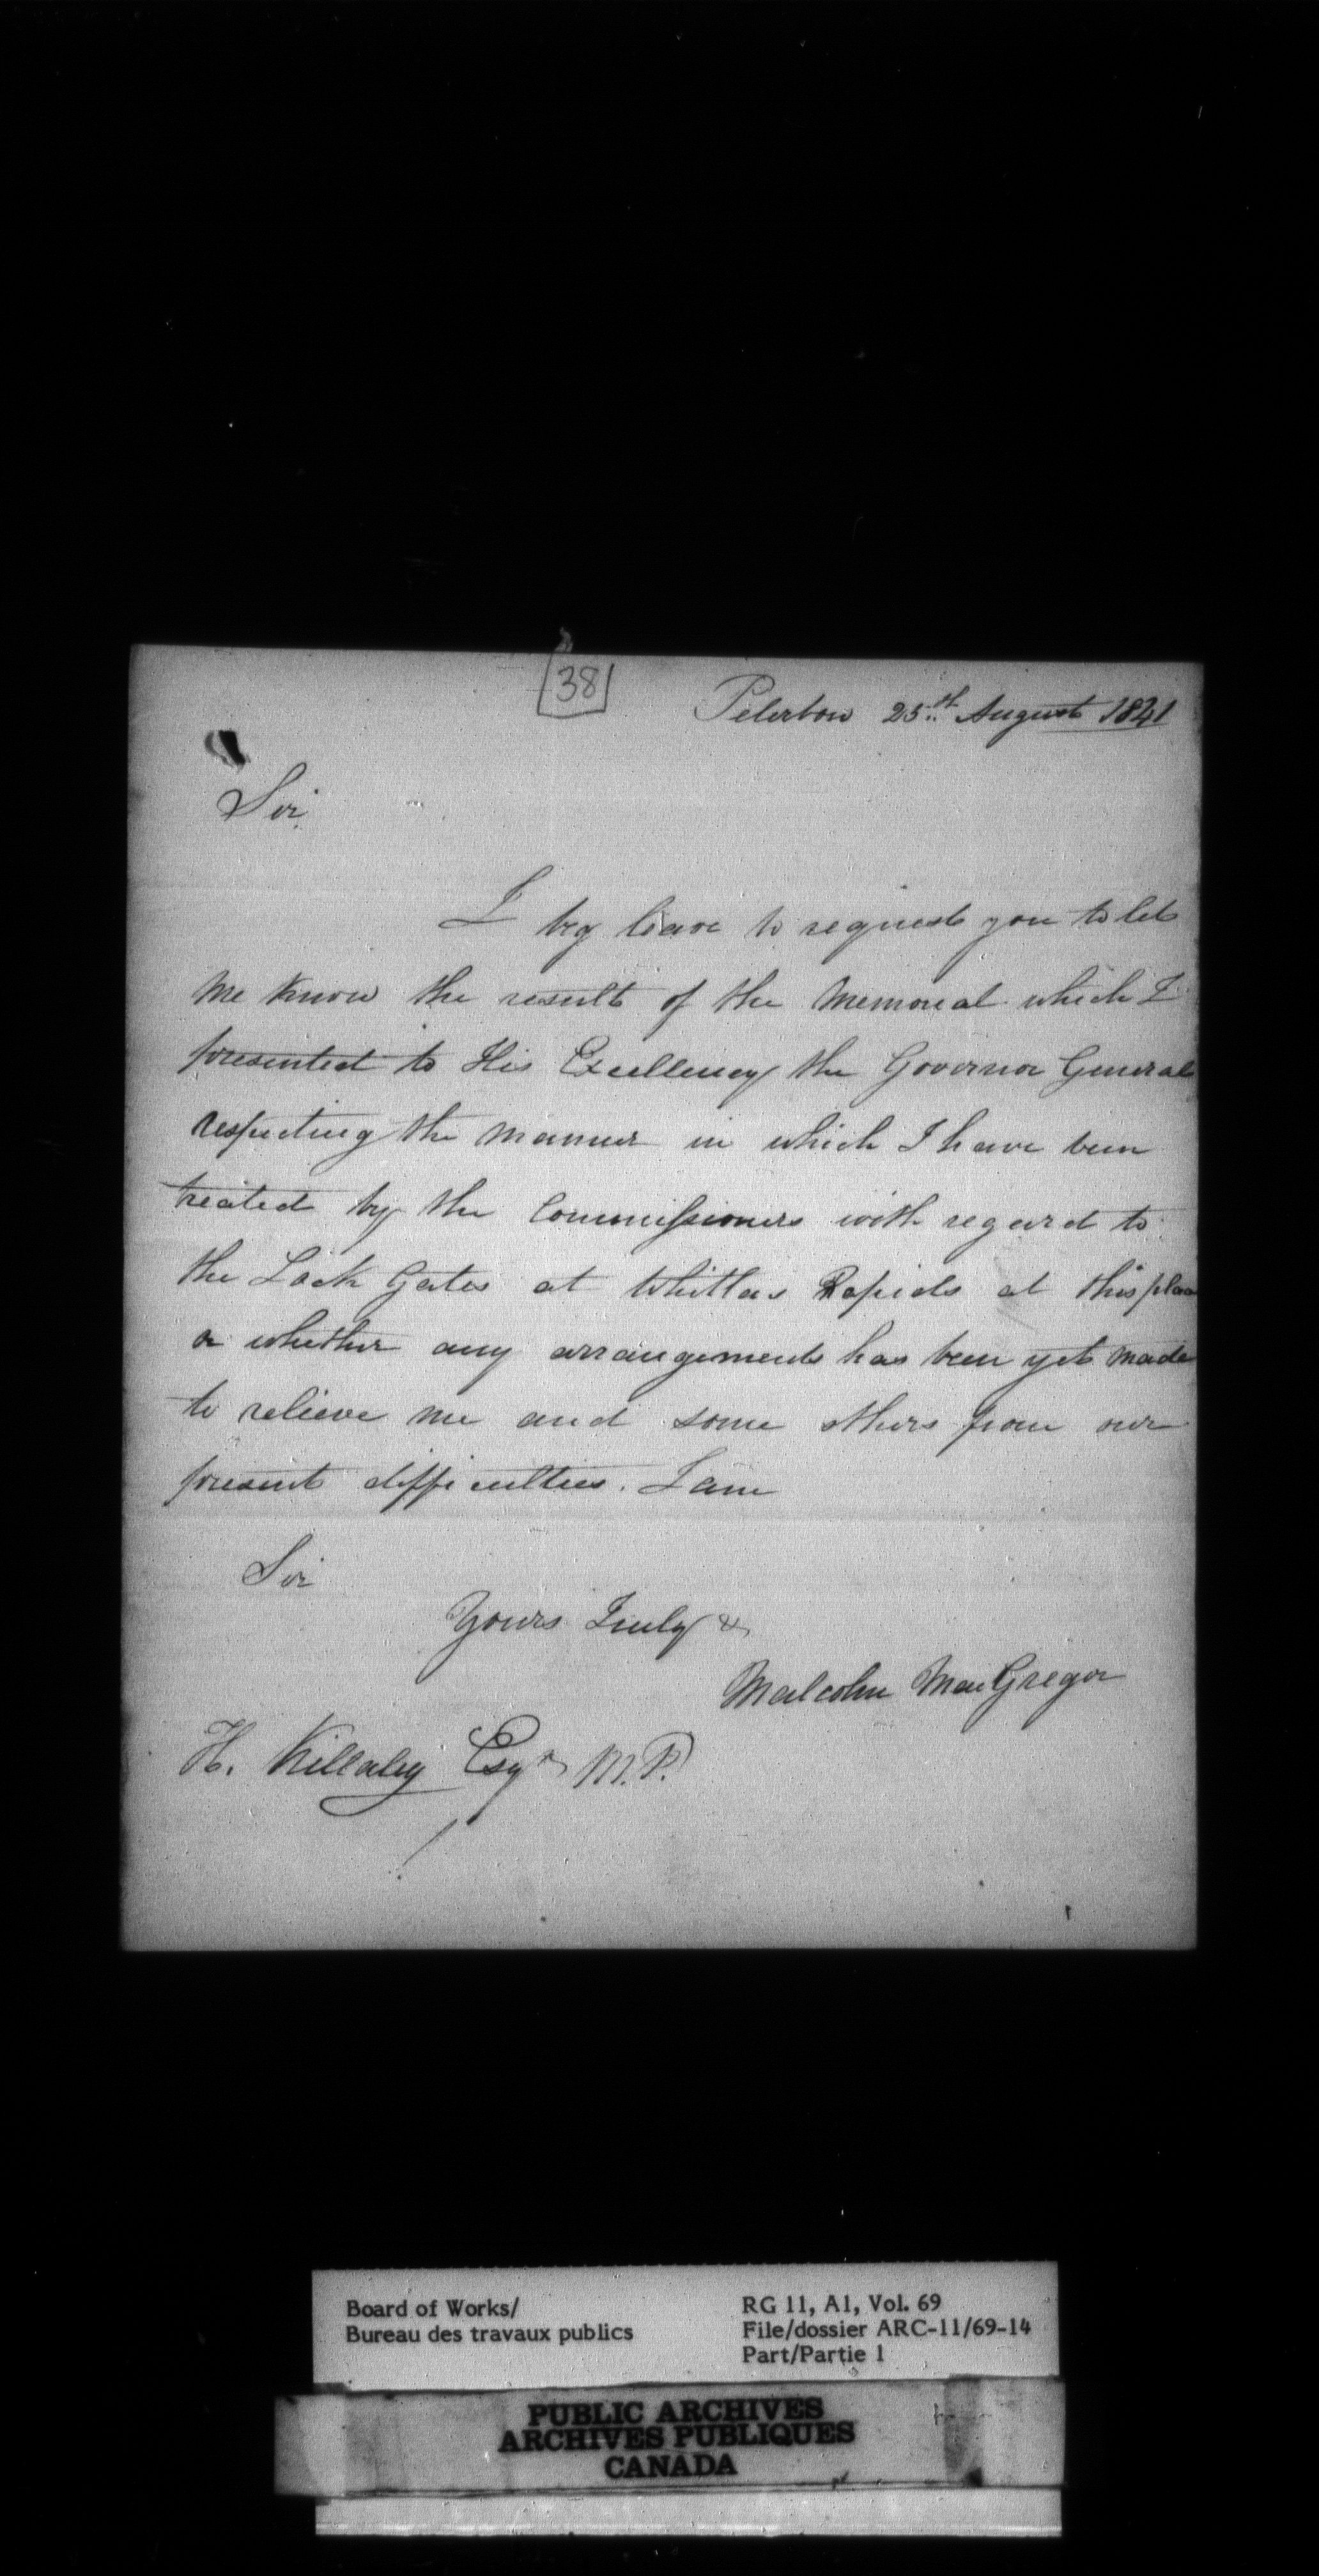 38
Peterboro 25th August 1841
Sir
I beg leave to request you to let
me know the result of the Memorial which I
presented to His Excellency the Governor General
respecting the manner in which I have been
treated by the Commissioners with regard to
the Lock Gates at Whitlas Rapids at this place
or whether any arrangements has been yet made
to relieve me and some others from our
present difficulties. I am
Sir
Yours Truly &
Malcolm MacGregor
H. Killaly Esqr M.P.
Board of Works/
Bureau des travaux publics
RG 11, A1, Vol. 69
File/dossier ARC-11/69-14
Part/Partie 1
PUBLIC ARCHIVES
ARCHIVES PUBLIQUES
CANADA